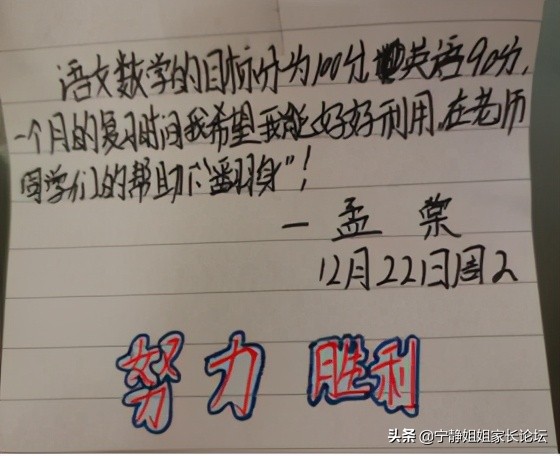 语文数学的目标分为100分,英语90分,
一个月的复习时间我希望我能好好利用,在老师
同学们的帮助下“翻身”!
一孟棠
12月22日周2
努力 胜利
头条 @宁静姐姐家长论坛